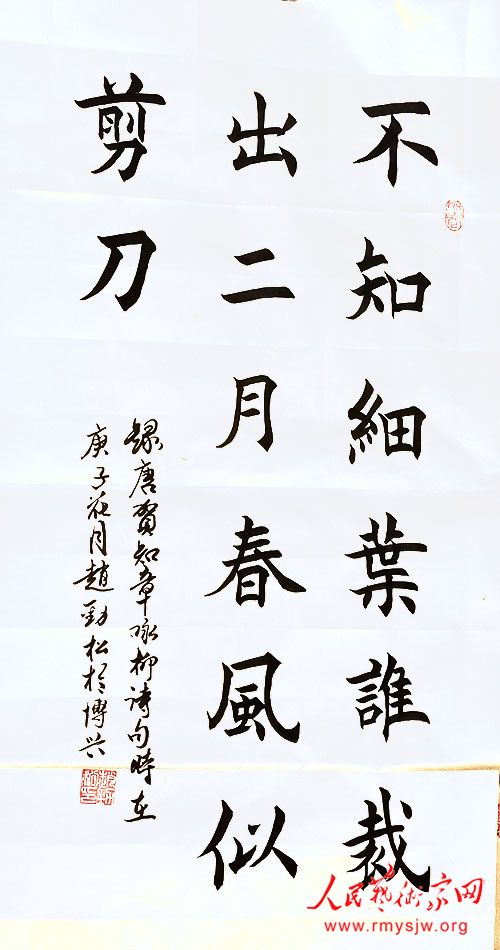 不知細葉誰裁
出二月春風似
剪刀
錄唐賀知章咏柳詩句時在
庚子花月趙勁松於博兴
人民藝術家网
www.rmysjw.org